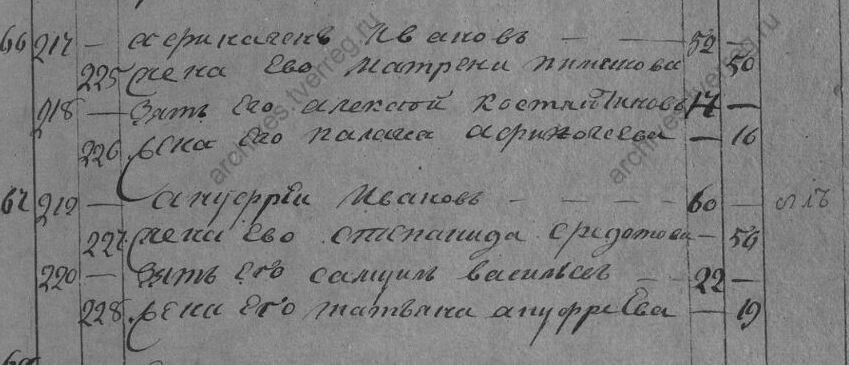 66 217 — Афиногенъ Ивановъ — — 52 —
225 жена Ево матрена пименова 50
218 — Зять Его алексѣй Костянтиновъ 17 —
226 жена Его палагея афиногеева — 16
67 219 — ануфреи Ивановъ — — — — 60 —
227 жена Ево степанида федотова — 50
220 — Зять Его самуилъ васильевъ — — 22 —
228 жена Его татьяна ануфреЕва — 19
archives.tverreg.ru
archives.tverreg.ru